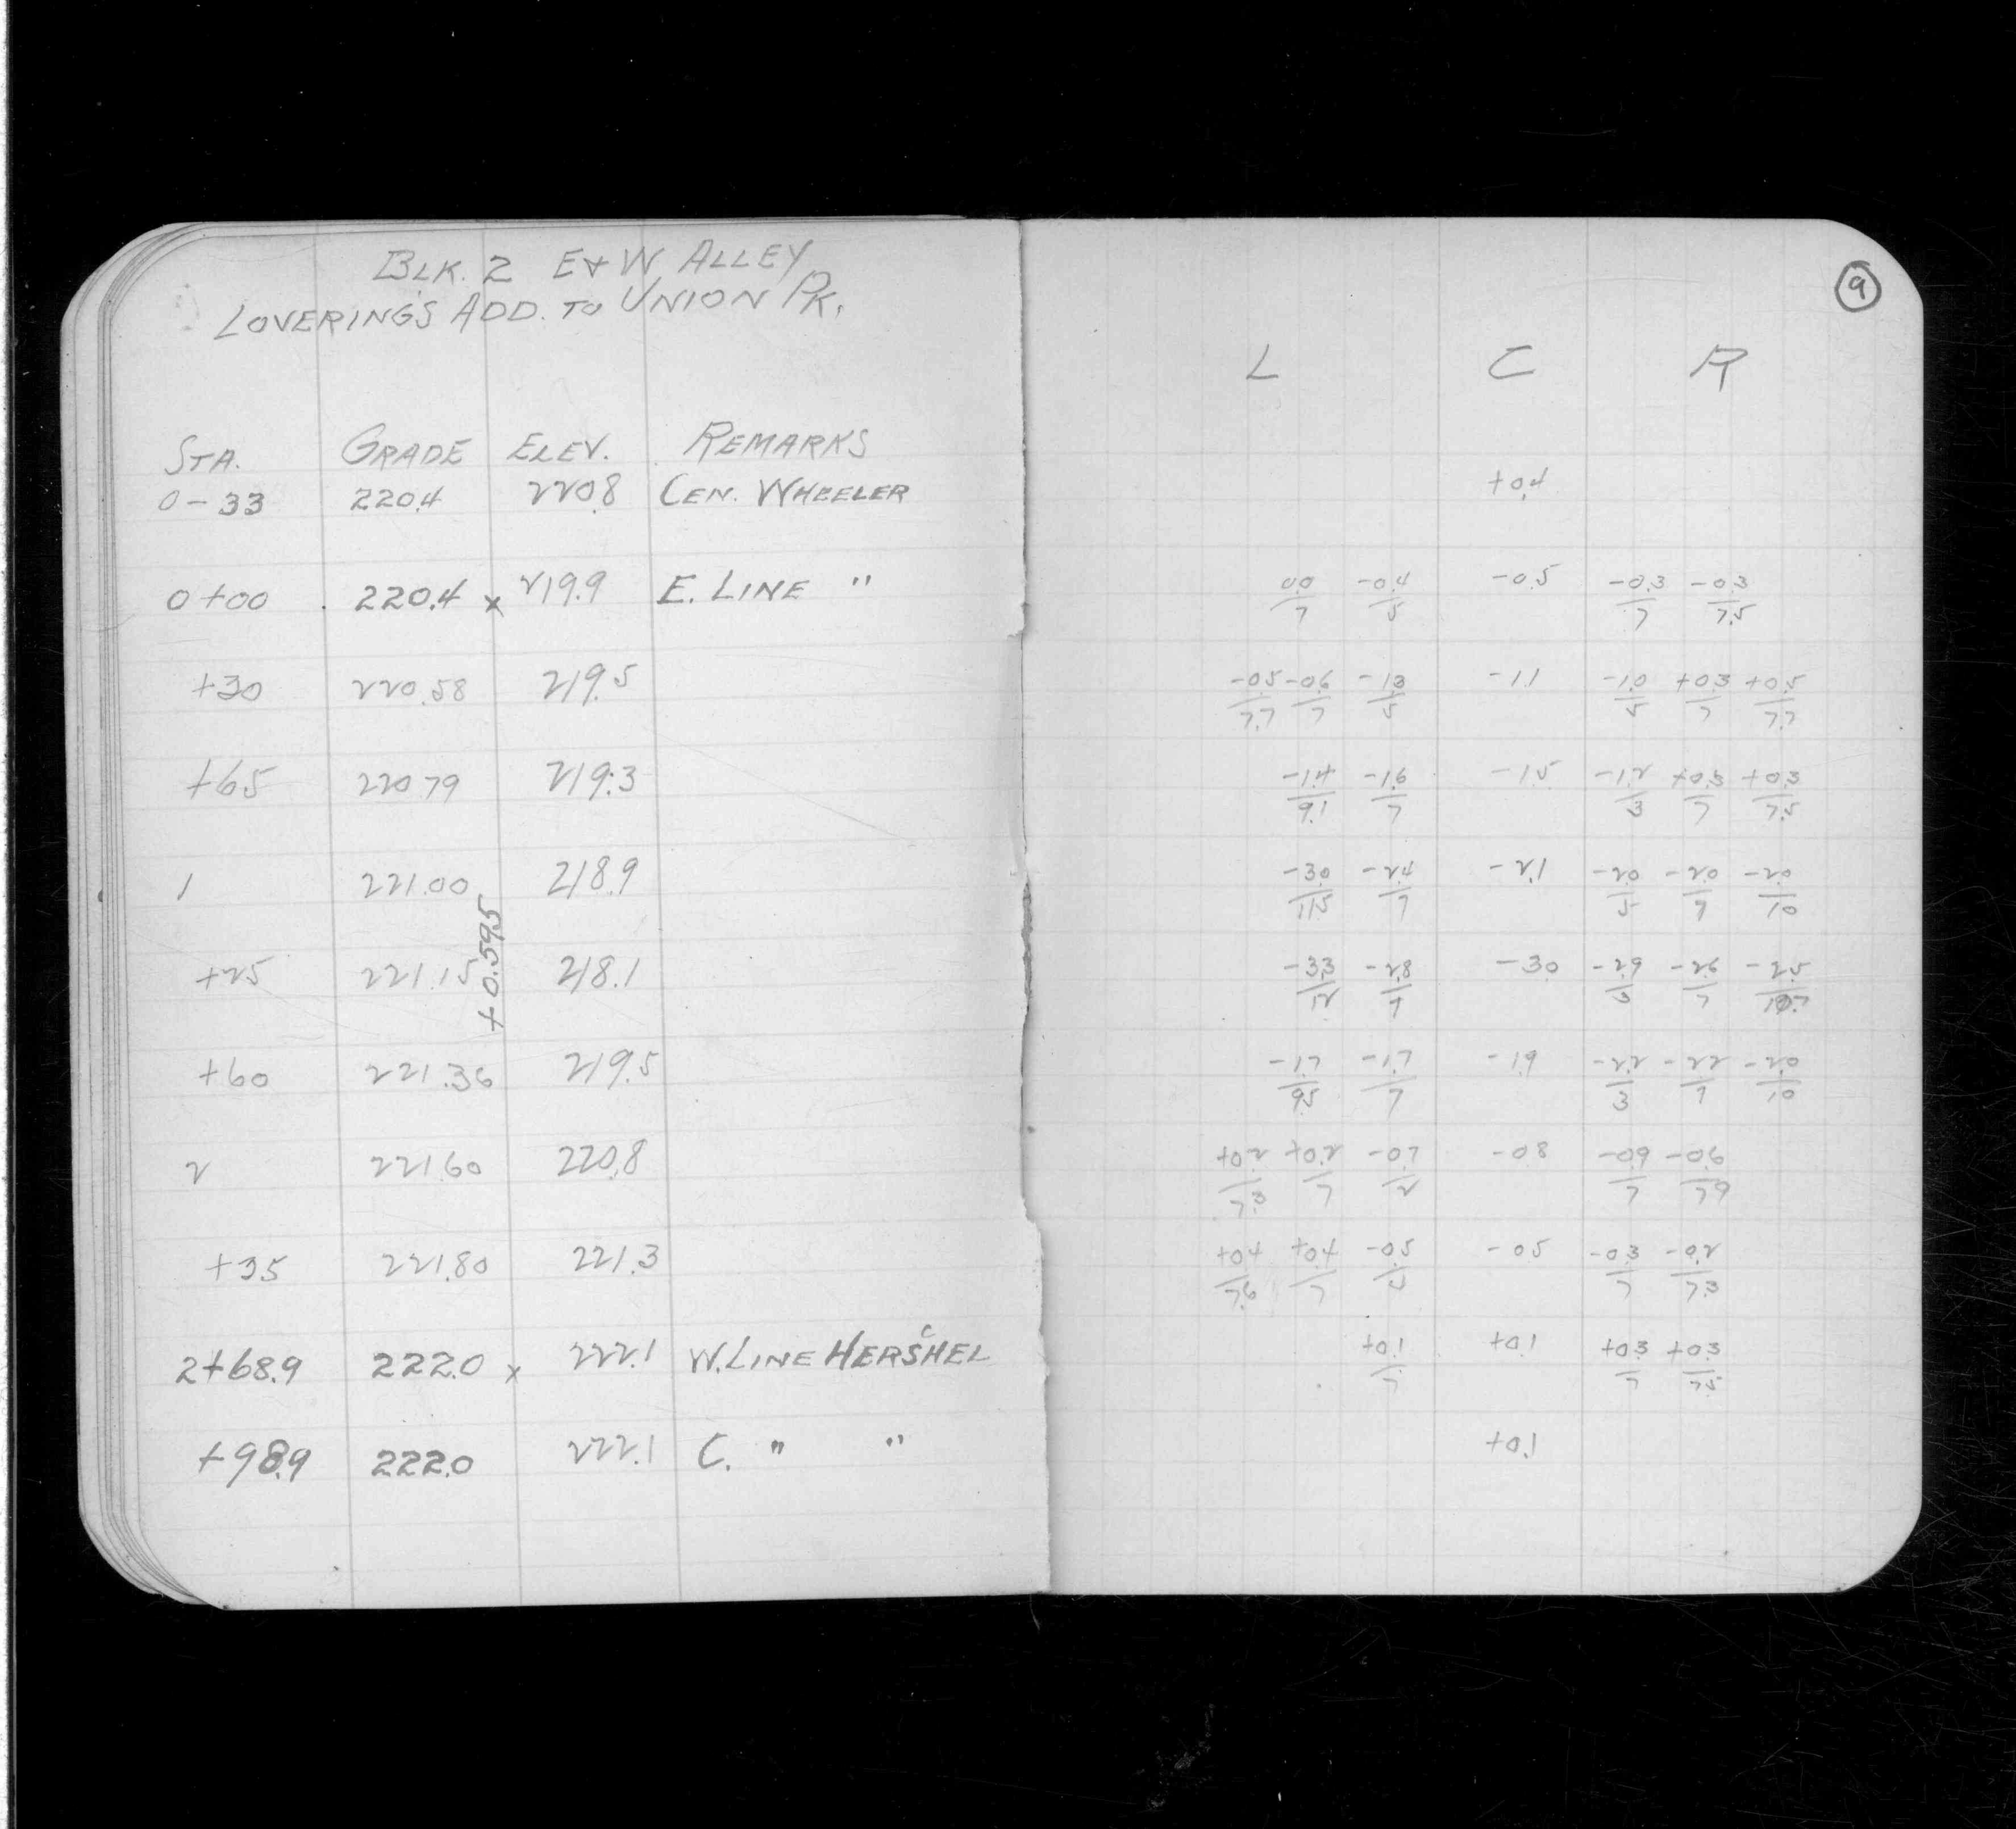 BLK. 2 E & W ALLEY
LOVERING'S ADD. TO UNION PK.
STA. GRADE ELEV. REMARKS
0-33 220.4 220.8 CEN. WHEELER
0+00 220.4 x 219.9 E. LINE "
+30 220.58 219.5
+65 220.79 219.3
1 221.00 218.9
+0.595
+25 221.15 218.1
+60 221.36 219.5
2 221.60 220.8
+35 221.80 221.3
2+68.9 222.0 x 222.1 W. LINE HERSCHEL
+98.9 222.0 222.1 C. " "
9
L C R
+0.4
0.0/7 -0.4/5 -0.5 -0.3/7 -0.3/7.5
-0.5/7.7 -0.6/7 -1.3/5 -1.1 -1.0/5 +0.3/7 +0.5/7.7
-1.4/9.1 -1.6/7 -1.5 -1.2/3 +0.3/7 +0.3/7.5
-3.0/11.5 -2.4/7 -2.1 -2.0/5 -2.0/7 -2.0/10
-3.3/12 -2.8/7 -3.0 -2.9 -2.6/7 -2.5
-1.7/9.5 -1.7/7 -1.9 -2.2/3 -2.2/7 -2.0/10
+0.2/7.3 +0.2/7 -0.7/2 -0.8 -0.9/7 -0.6/7.9
+0.4/7.6 +0.4/7 -0.5 -0.5 -0.3/7 -0.2/7.3
+0.1/7 +0.1 +0.3/7 +0.3/7.5
+0.1